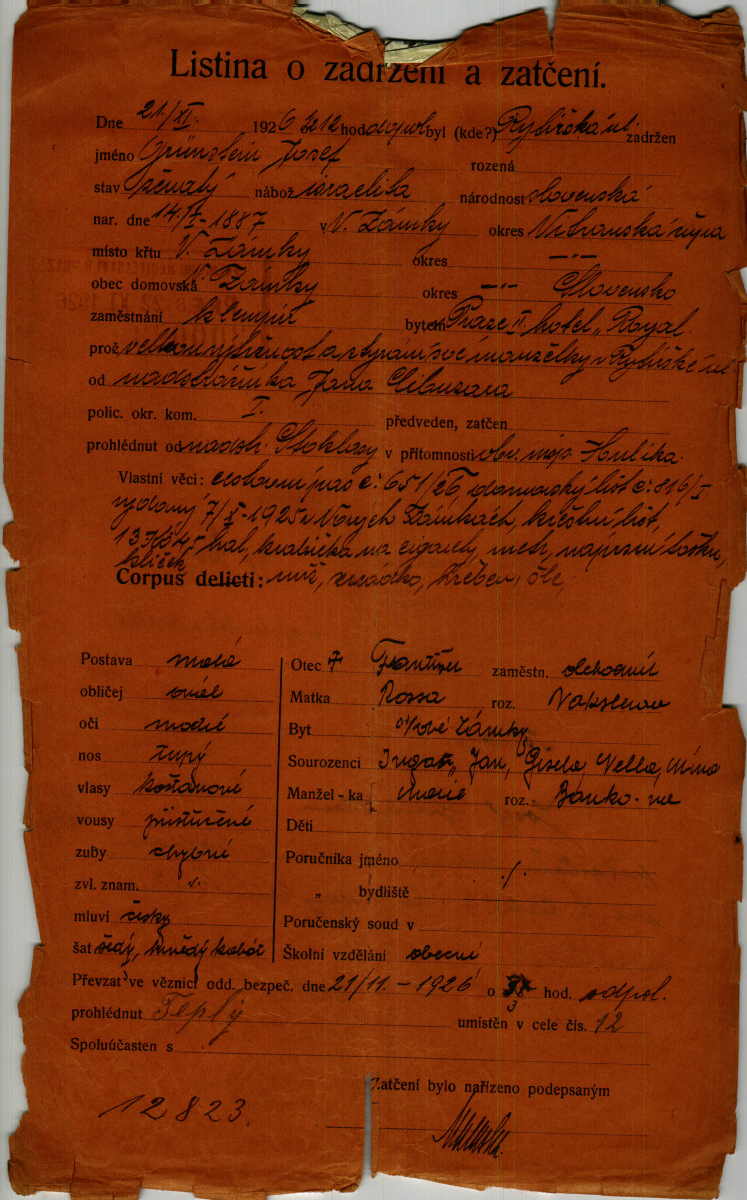 Listina o zadržení a zatčení.
Dne 21/XI. 1926 hod odpol byl (kde?) Rytířská ul zadržen
jméno Grünstein Josef rozená
stav ženatý nábož israelita národnost slovenská
nar. dne 14/I-1887 v N. Zámky okres Nitranská župa
místo křtu N. Zamky okres —"—
obec domovská N. Zamky okres —"— Slovensko
zaměstnání klempíř bytem Praze II. hotel „Royal.
proč výtržnost a týrání své manželky v Rytířské ul
od nadstrážníka Jana
polic. okr. kom. I. předveden, zatčen
prohlédnut od nadstr. Stoklasy v přítomnosti Hulíka.
Vlastní věci: cestovní pas č. 651/26, domovský list č. 816/I
vydaný 7/X-1925 v Nových Zámkách, křestní list,
hal, krabička na cigarety, metr, náprsní tašku,
klíček
Corpus delicti: nůž, zrcádko, hřeben,
Postava malá
obličej ovál
oči modré
nos tupý
vlasy kaštanové
vousy přistřižené
zuby chybné
zvl. znam. ./.
mluví česky
šat šedý, hnědý kabát
Otec † František zaměstn.
Matka Rossa roz.
Byt Nové Zámky
Sourozenci Jan, Gisela Nella,
Manžel-ka Marie roz. Bánko-
Děti
Poručníka jméno ./.
„ bydliště
Poručenský soud v
Školní vzdělání obecní
Převzat ve věznici odd. bezpeč. dne 21/11.-1926 o hod. odpol.
prohlédnut Teplý umístěn v cele čís. 12
Spoluúčasten s
Zatčení bylo nařízeno podepsaným
12823.